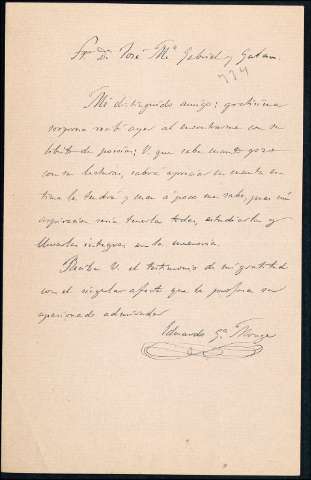 Sr. Dn. José Mª Gabriel y Galan
Mi distinguido amigo: gratísima
sorpresa recibí ayer al encontrarme con su
librito de poesías; V. que sabe cuanto gozo
con su lectura, sabrá apreciar en cuanta es-
tima le tendré y que a poco me sabe, pues mi
aspiración sería tenerlas todas, estudiarlas y
llevarlas íntegras en la memoria.
Reciba V. el testimonio de mi gratitud
con el singular afecto que le profesa su
apasionado admirador
Eduardo Gª